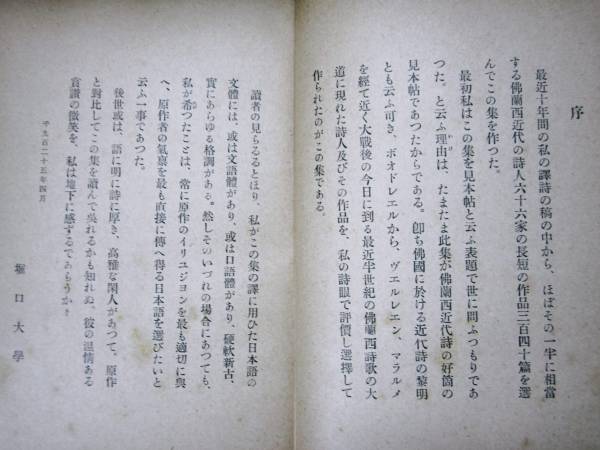 序
最近十年間の私の譯詩の稿の中から、ほぼその一半に相當
する佛蘭西近代の詩人六十六家の長短の作品三百四十篇を選
んでこの集を作つた。
最初私はこの集を見本帖と云ふ表題で世に問ふつもりであ
つた。と云ふ理由は、たまたま此集が佛蘭西近代詩の好箇の
見本帖であつたからである。卽ち佛國に於ける近代詩の黎明
とも云ふ可き、ボオドレエルから、ヴエルレエン、マラルメ
を經て近く大戰後の今日に到る最近半世紀の佛蘭西詩歌の大
道に現れた詩人及びその作品を、私の詩眼で評價し選擇して
作られたのがこの集である。
讀者の見らるるとほり、私がこの集の譯に用ひた日本語の
文體には、或は文語體があり、或は口語體があり、硬軟新古、
實にあらゆる格調がある。然しそのいづれの場合にあつても、
私が希つたことは、常に原作のイリユジヨンを最も適切に與
へ、原作者の氣禀を最も直接に傳へ得る日本語を選びたいと
云ふ一事であつた。
後世或は、語に明に詩に厚き、高雅な閑人があつて、原作
と對比してこの集を讀んで吳れるかも知れぬ。彼の温情ある
賞讃の微笑を、私は地下に感ずるであらうか？
千九百二十五年四月
堀口大學